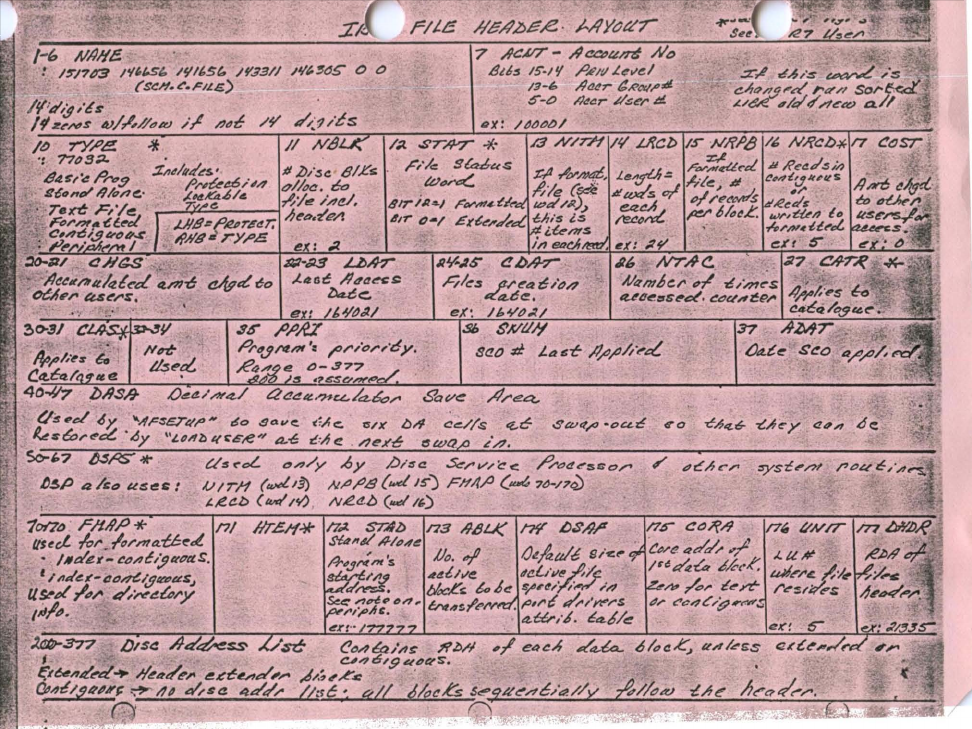 FILE HEADER LAYOUT
See R7 User
1-6 NAME
: 151703 146656 141656 143311 146305 0 0
(SCM.C.FILE)
14 digits
14 zeros w/follow if not 14 digits
7 ACNT - Account No
Bits 15-14 Priv Level
13-6 Acct Group#
5-0 Acct User #
ex: 100001
If this word is
changed run sorted
LIBR old & new all
10 TYPE *
: 77032
Basic Prog
Stand Alone
Text File
Formatted
Contiguous
Peripheral
Includes:
Protection
Lockable
Type
LHB=PROTECT.
RHB=TYPE
11 NBLK
# Disc Blks
alloc. to
file incl.
header
ex: 2
12 STAT *
File Status
Word
BIT 12=1 Formatted
BIT 0=1 Extended
13 NITM
If format,
file (see
wd 12),
this is
# items
in each red.
14 LRCD
Length=
#wds of
each
record
ex: 24
15 NRPB
If
Formatted
file, #
of records
per block.
16 NRCD*
# Recds in
contiguous
or
# Recds
written to
formatted
ex: 5
17 COST
Amt chgd
to other
users for
access.
ex: 0
20-21 CHGS
Accumulated amt chgd to
other users.
22-23 LDAT
Last Access
Date
ex: 164021
24-25 CDAT
Files creation
date.
ex: 164021
26 NTAC
Number of times
accessed. counter
27 CATR *
Applies to
catalogue.
30-31 CLAS*
Applies to
Catalogue
32-34
Not
Used
35 PPRI
Program's priority.
Range 0-377
200 is assumed.
36 SNUM
SCO # Last Applied
37 ADAT
Date SCO applied.
40-47 DASA Decimal Accumulator Save Area
Used by "AFSETUP" to save the six DA cells at swap-out so that they can be
Restored by "LOADUSER" at the next swap in.
50-67 DSPS * Used only by Disc Service Processor & other system routines
DSP also uses: NITM (wd 13) NPPB (wd 15) FMAP (wds 70-170)
LRCD (wd 14) NRCD (wd 16)
70-170 FMAP *
Used for formatted
Index-contiguous.
Index-contiguous,
Used for directory
info.
171 HTEM*
172 STAD
Stand Alone
Program's
starting
address.
See note on
periphs.
ex: 177777
173 ABLK
No. of
active
blocks to be
transferred.
174 DSAF
Default size of
active file
specified in
port drivers
attrib. table
175 CORA
Core addr of
1st data block.
Zero for text
or contiguous
176 UNIT
LU#
where file
resides
ex: 5
177 DHDR
RDA of
files
header
ex: 21335
200-377 Disc Address List Contains RDA of each data block, unless extended or
contiguous.
Extended → Header extender blocks
Contiguous → no disc addr list: all blocks sequentially follow the header.